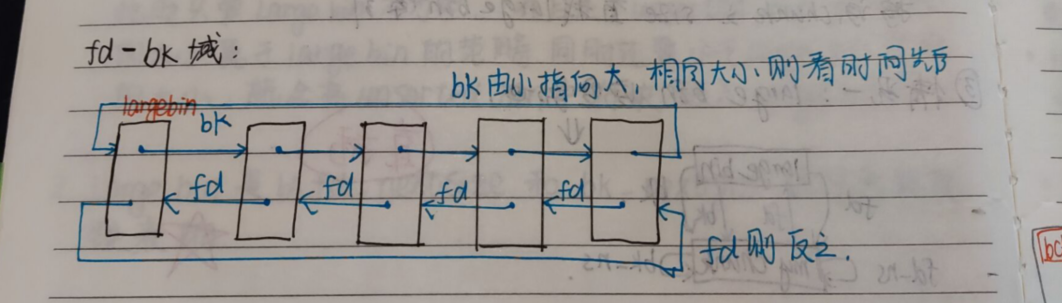 fd-bk域：
bk由小指向大，相同大小，则看时间先后
largebin
bk
fd fd fd fd
fd则反之.